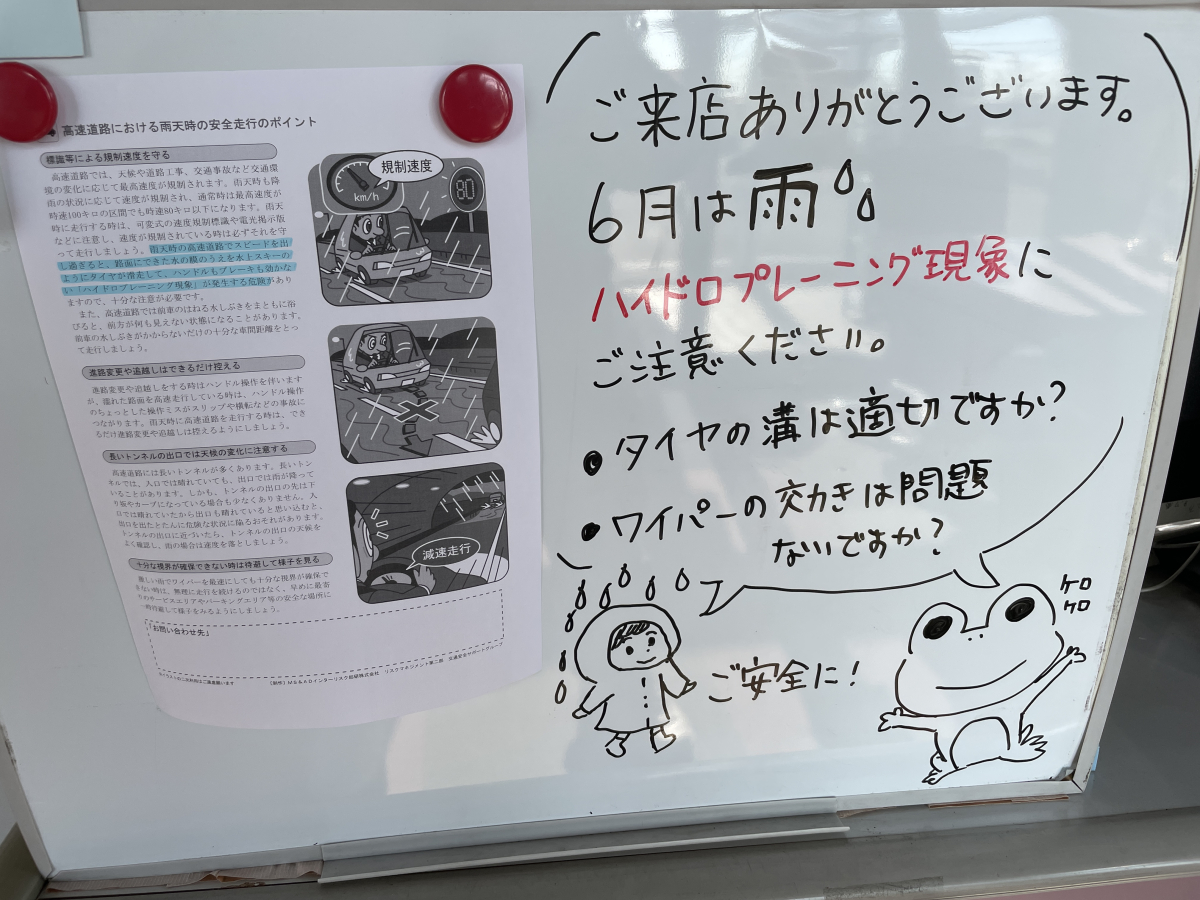 高速道路における雨天時の安全走行のポイント
標識等による規制速度を守る
高速道路では、天候や道路工事、交通事故など交通環
境の変化に応じて最高速度が規制されます。雨天時も降
雨の状況に応じて速度が規制され、通常時は最高速度が
時速100キロの区間でも時速80キロ以下になります。雨天
時に走行する時は、可変式の速度規制標識や電光掲示版
などに注意し、速度が規制されている時は必ずそれを守
って走行しましょう。雨天時の高速道路でスピードを出
し過ぎると、路面にできた水の膜のうえを水上スキーの
ようにタイヤが滑走して、ハンドルもブレーキも効かな
い「ハイドロプレーニング現象」が発生する危険があり
ますので、十分な注意が必要です。
また、高速道路では前車のはねる水しぶきをまともに浴
びると、前方が何も見えない状態になることがあります。
前車の水しぶきがかからないだけの十分な車間距離をとっ
て走行しましょう。
進路変更や追越しはできるだけ控える
進路変更や追越しをする時はハンドル操作を伴います
が、濡れた路面を高速走行している時は、ハンドル操作
のちょっとした操作ミスがスリップや横転などの事故に
つながります。雨天時に高速道路を走行する時は、でき
るだけ進路変更や追越しは控えるようにしましょう。
長いトンネルの出口では天候の変化に注意する
高速道路には長いトンネルが多くあります。長いトン
ネルでは、入口では晴れていても、出口では雨が降って
いることがあります。しかも、トンネルの出口の先は下
り坂やカーブになっている場合も少なくありません。入
口では晴れていたから出口も晴れていると思い込むと、
出口を出たとたんに危険な状況に陥るおそれがあります。
トンネルの出口に近づいたら、トンネルの出口の天候を
よく確認し、雨の場合は速度を落としましょう。
十分な視界が確保できない時は待避して様子を見る
激しい雨でワイパーを最速にしても十分な視界が確保で
きない時は、無理に走行を続けるのではなく、早めに最寄
りのサービスエリアやパーキングエリア等の安全な場所に
一時待避して様子をみるようにしましょう。
「お問い合わせ先」
［制作］MS&ADインターリスク総研株式会社 リスクマネジメント第二部 交通安全サポートグループ
規制速度
km/h
80
減速走行
ご来店ありがとうございます。
6月は雨
ハイドロプレーニング現象に
ご注意ください。
● タイヤの溝は適切ですか?
● ワイパーの効きは問題
ないですか?
ケロ
ケロ
ご安全に!